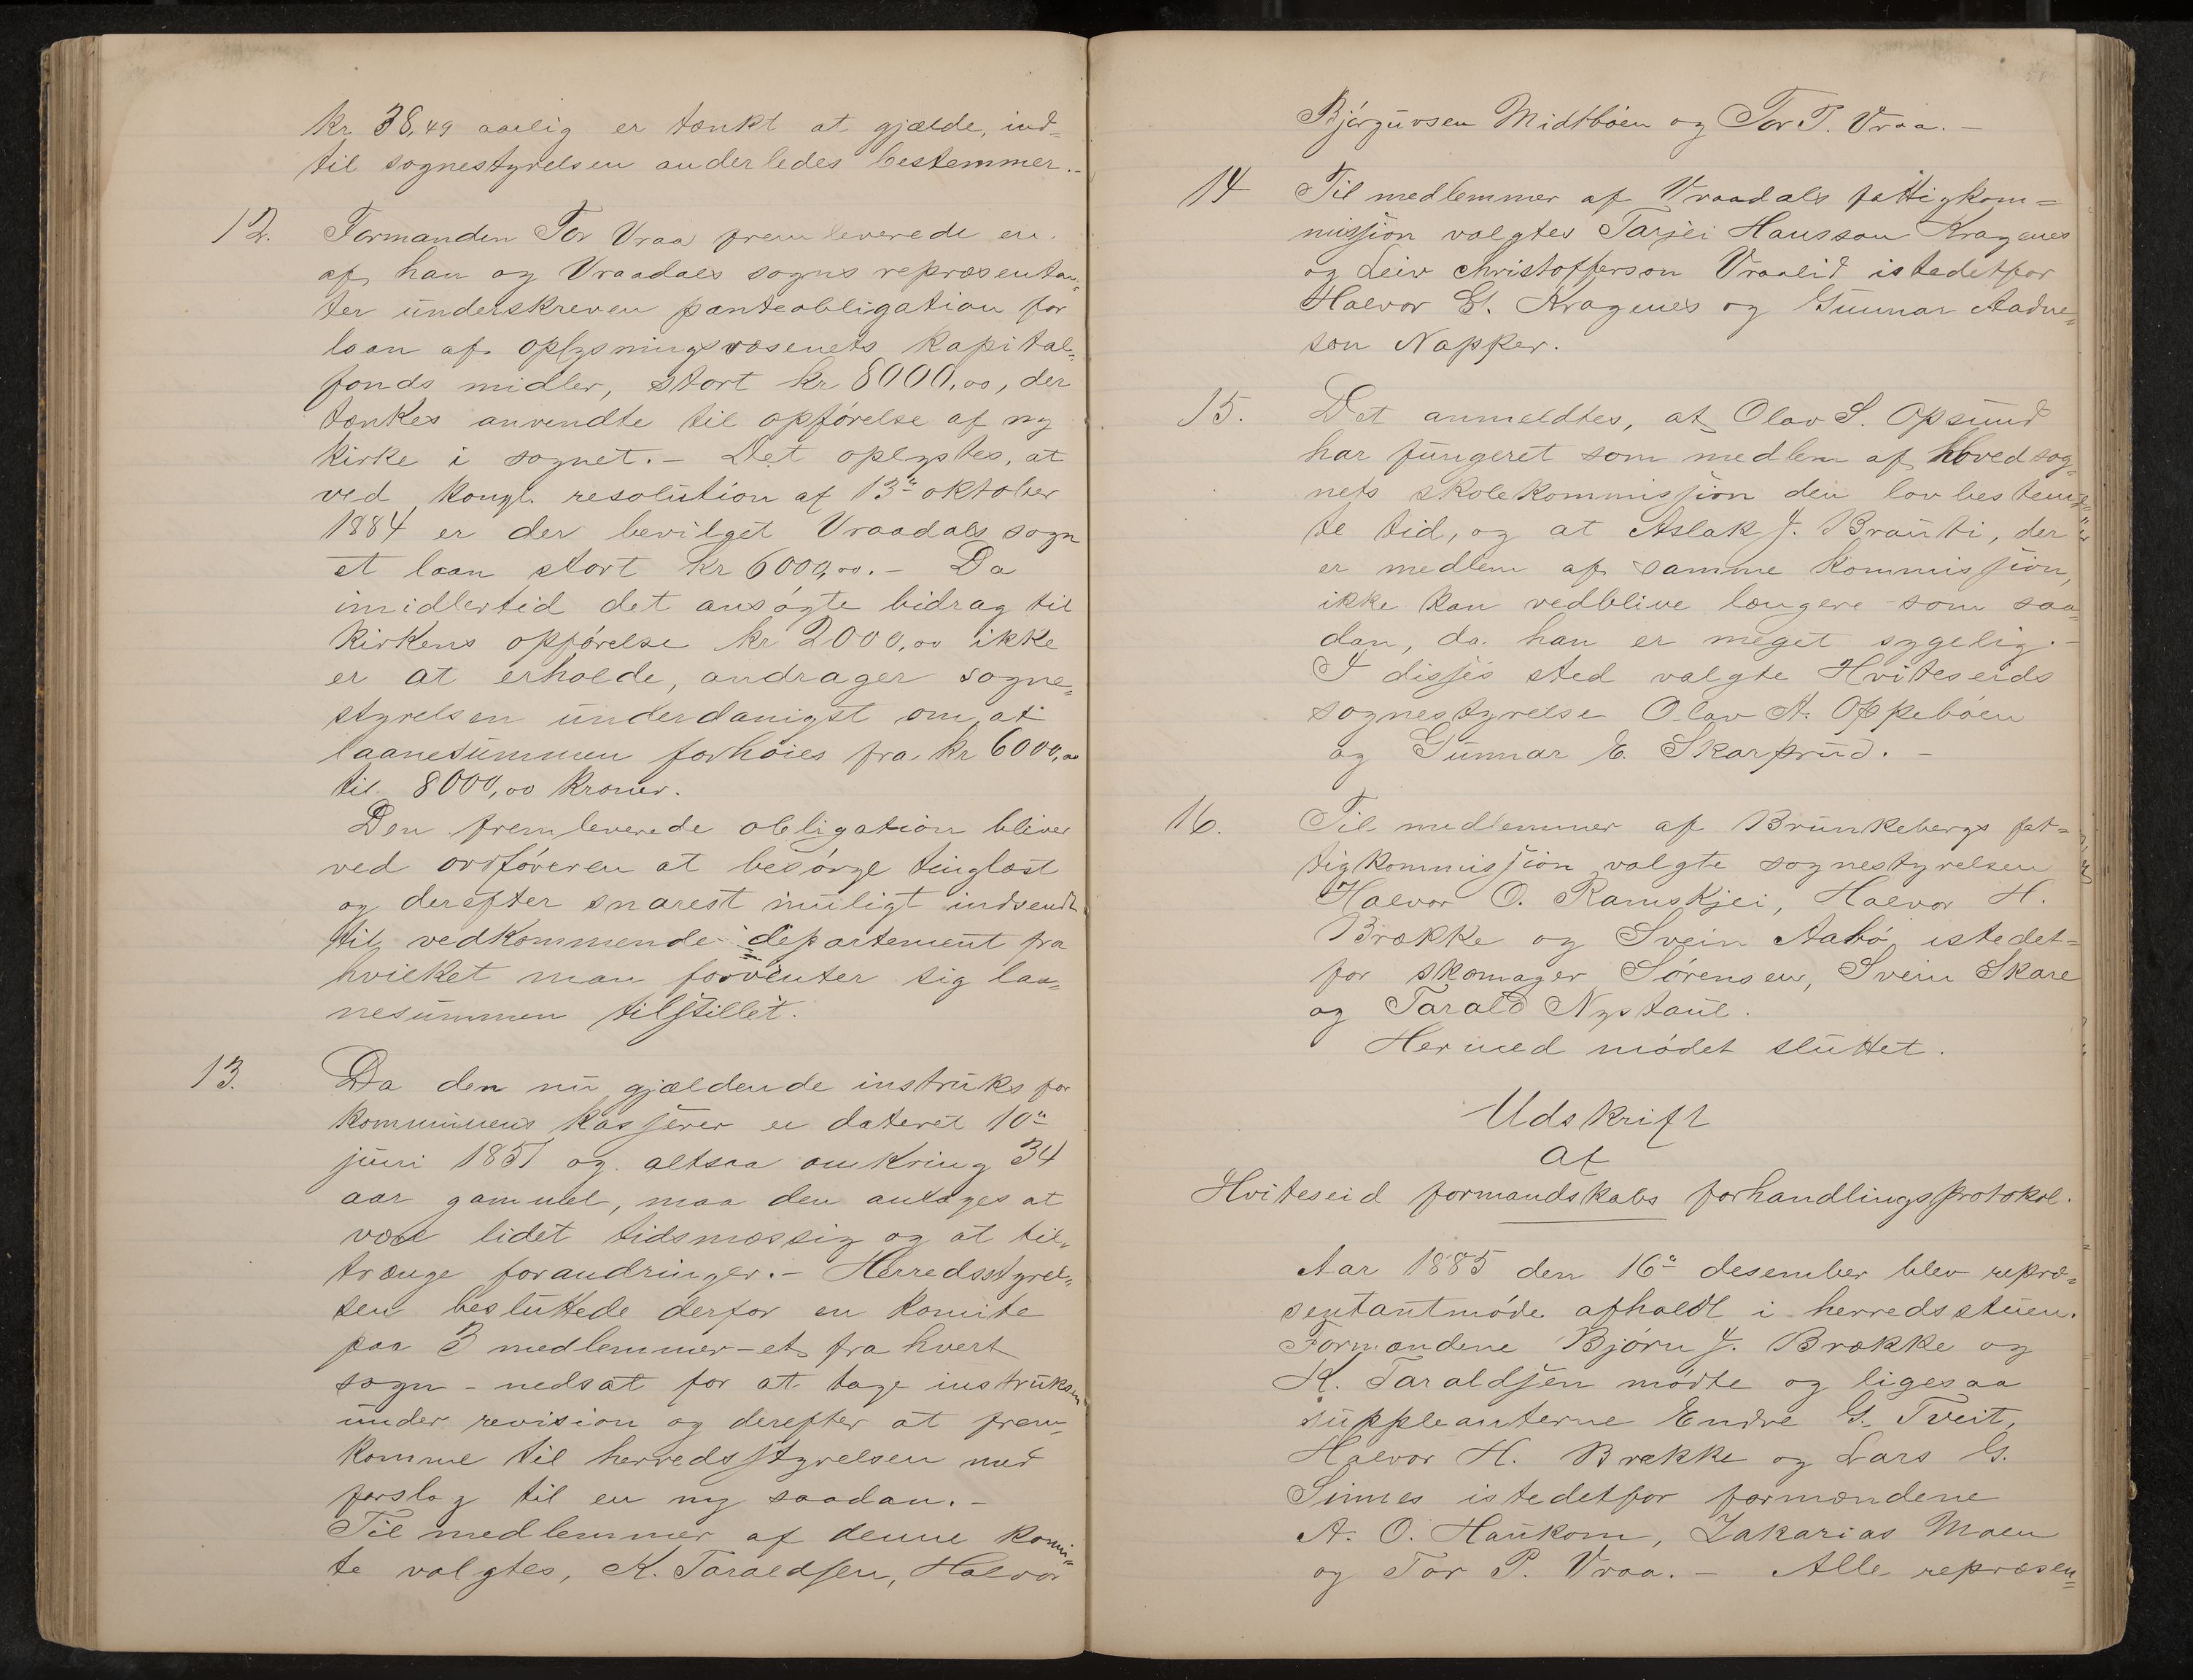 kr 38,49 aarlig er tænkt at gjælde, ind=
til sognestyrelsen anderledes bestemmer.-
12. Formanden Tor Vraa fremleverede en
af han og Vraadals sogns repræsentan=
ter underskreven panteobligation for
laan af oplysningsvæsenets kapital=
fonds midler, stort kr 8000,00, der
tænkes anvendte til opførelse af ny
kirke i sognet.- Det oplystes, at
ved kongl. resolution af 13de oktober
1884 er der bevilget Vraadals sogn
et laan stort kr 6000,00.- Da
imidlertid det ansøgte bidrag til
kirkens opførelse kr 2000,00 ikke
er at erholde, andrager sogne=
styrelsen underdanigst om, at
laanesummen forhøies fra kr 6000,00
til 8000,00 kroner.
Den fremleverede obligation bliver
ved ordføreren at besørge tinglæst
og derefter snarest muligt indsendt
til vedkommende departement fra
hvilket man forventer sig laa=
nesummen tilstillet.
13. Da den nu gjældende instruks for
kommunens kasserer er dateret 10de
juni 1851 og altsaa omkring 34
aar gammel, maa den antages at
være lidet tidsmæssig og at til=
trænge forandringer.- Herredsstyrel=
sen besluttede derfor en komite
paa 3 medlemmer - et fra hvert
sogn - nedsat for at tage instruksen
under revision og derefter at frem=
komme til herredsstyrelsen med
forslag til en ny saadan.-
Til medlemmer af denne komi=
te valgtes, K. Taraldsen, Halvor
Bjørguvsen Midtbøen og Tor P. Vraa.-
14 Til medlemmer af Vraadals fattigkom=
mission valgtes Tarjei Hansson Kragenes
og Leiv Christofferson Vraalid istedetfor
Halvor G. Kragenes og Gunnar Aadne=
son Napper.
15. Det anmeldtes, at Olav S. Opsund
har fungeret som medlem af hovedsog=
nets skolekommission den lovbestem=
te tid, og at Aslak J. Brauti, der
er medlem af samme kommission,
ikke kan vedblive længere som saa
dan, da han er meget sygelig.-
I disses sted valgte Hviteseids
sognestyrelse Olav A. Oppebøen
og Gunnar E. Skarprud.-
16. Til medlemmer af Brunkebergs fat=
tigkommission valgte sognestyrelsen
Halvor O. Ramskjei, Halvor H.
Brække og Svein Aabø istedet=
for skomager Sørensen, Svein Skare
og Tarald Nystaul.
Hermed mødet sluttet.
Udskrift
af
Hviteseid formandskabs forhandlingsprotokol.
Aar 1885 den 16de desember blev repræ=
sentantmøde afholdt i herredsstuen.
Formændene Bjørn J. Brække og
K. Taraldsen mødte og ligesaa
suppleanterne Endre G. Tveit,
Halvor H. Brække og Lars G.
Sinnes istedetfor formændene
A. O. Haukom, Zakarias Moen
og Tor P. Vraa.- Alle repræsen=